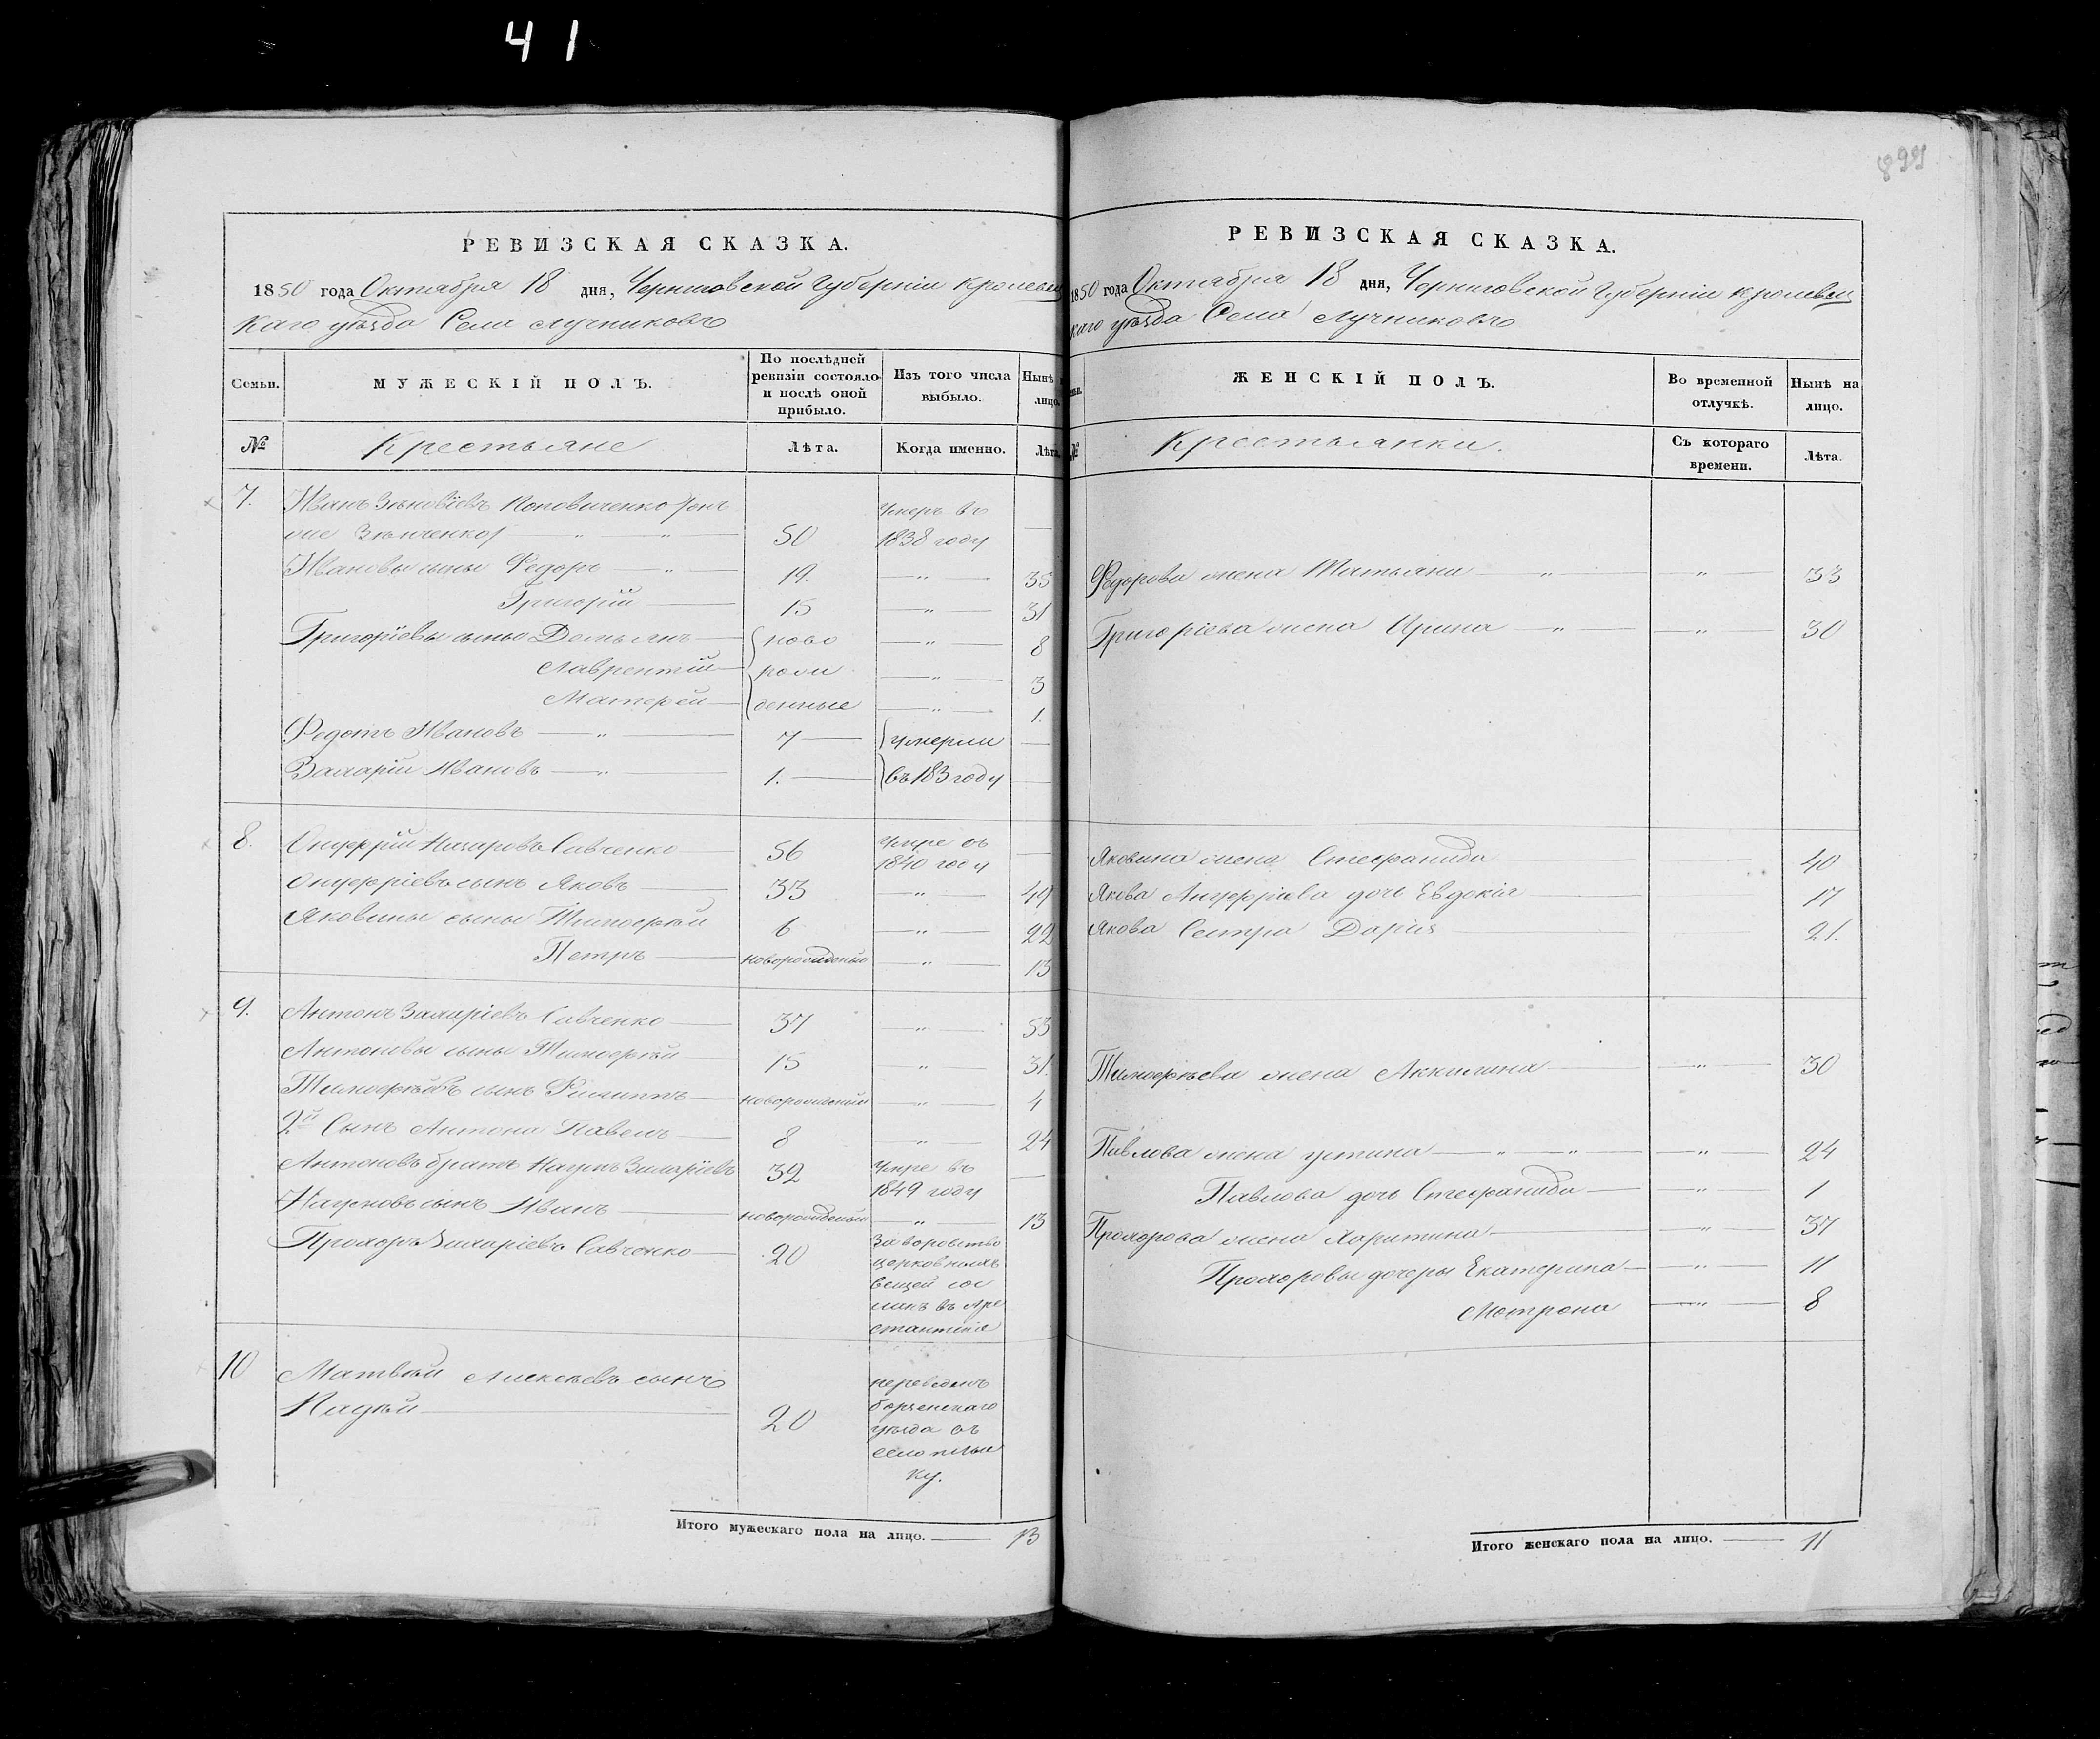 41
899
РЕВИЗСКАЯ СКАЗКА.
1850 года Октября 18 дня, Черниговской Губерніи Кролевец
каго уѣзда Села Лучниковъ
Семьи.
МУЖЕСКІЙ ПОЛЪ.
По послѣдней ревизіи состояло и послѣ оной прибыло.
Изъ того числа выбыло.
Нынѣ на лицо.
№
Крестьяне
Лѣта.
Когда именно.
Лѣта.
7. Иванъ Зѣновіевъ Поповиченко /онъ Умеръ въ
оже Зѣнченко/ 50 1838 году
Ивановы сыны Федоръ 19. 35
Григорій 15 31
Григоріевы сыны Демьянъ ново 8
Лаврентій рожи 3
Матфей денные 1.
Федотъ Ивановъ 7 умерли
Захарій Ивановъ 1. въ 183 году
8. Онуфрій Назаровъ Савченко 56 Умре въ 1840 году
Онуфріевъ сынъ Яковъ 33 49
Яковины сыны Тимофѣй 6 22
Петръ новорожденый 13
9. Антонъ Захаріевъ Савченко 37 53
Антоновы сыны Тимофѣй 15 31.
Тимофѣевъ сынъ Филиппъ новорожденый 4
2й Сынъ Антона Павелъ 8 24
Антоновъ братъ Наумъ Захаріевъ 32 Умре въ 1849 году
Наумовъ сынъ Иванъ новорожденый 13
Прохоръ Захаріевъ Савченко 20 За воровство
церковныхъ
вещей сос
ланъ въ Аре
стантскія
10 Матвѣй Алексѣевъ сынъ переведенъ
Надѣй 20 борзенскаго
уѣзда въ
село
ку.
Итого мужескаго пола на лицо. 13
РЕВИЗСКАЯ СКАЗКА.
1850 года Октября 18 дня, Черниговской Губерніи Кролевец
каго уѣзда Села Лучниковъ
ЖЕНСКІЙ ПОЛЪ.
Во временной отлучкѣ.
Нынѣ на лицо.
№
Крестьянки.
Съ котораго времени.
Лѣта.
Федорова жена Татьяна 33
Григоріева жена Ирина 30
Яковина жена Стефанида 40
Якова Ануфріева дочь Евдокія 17
Якова Сестра Дарія 21.
Тимофѣева жена Акилина 30
Павлова жена Устина 24
Павлова дочь Стефанида 1
Прохорова жена Харитина 37
Прохоровы дочеры Екатерина 11
Мотрона 8
Итого женскаго пола на лицо. 11